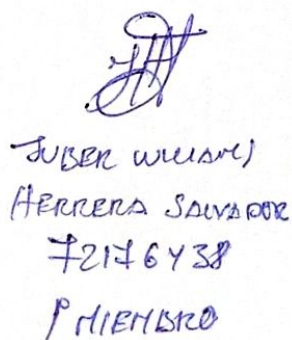 JUBER WILLIAMS
HERRERA SALVADOR
72176438
P MIEMBRO